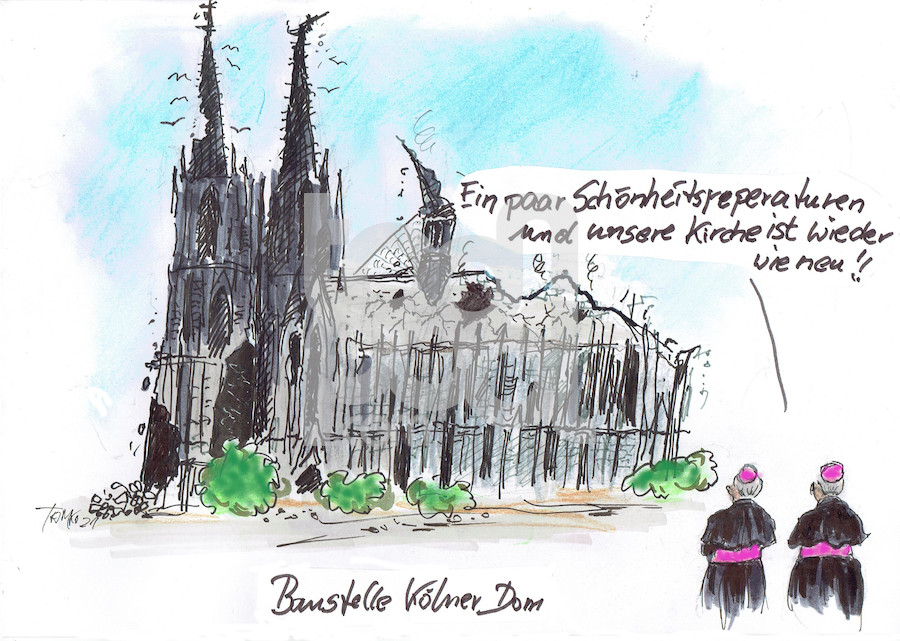 Ein paar Schönheitsreperaturen
und unsere Kirche ist wieder
wie neu!!
TOMKO 21
Baustelle Kölner Dom